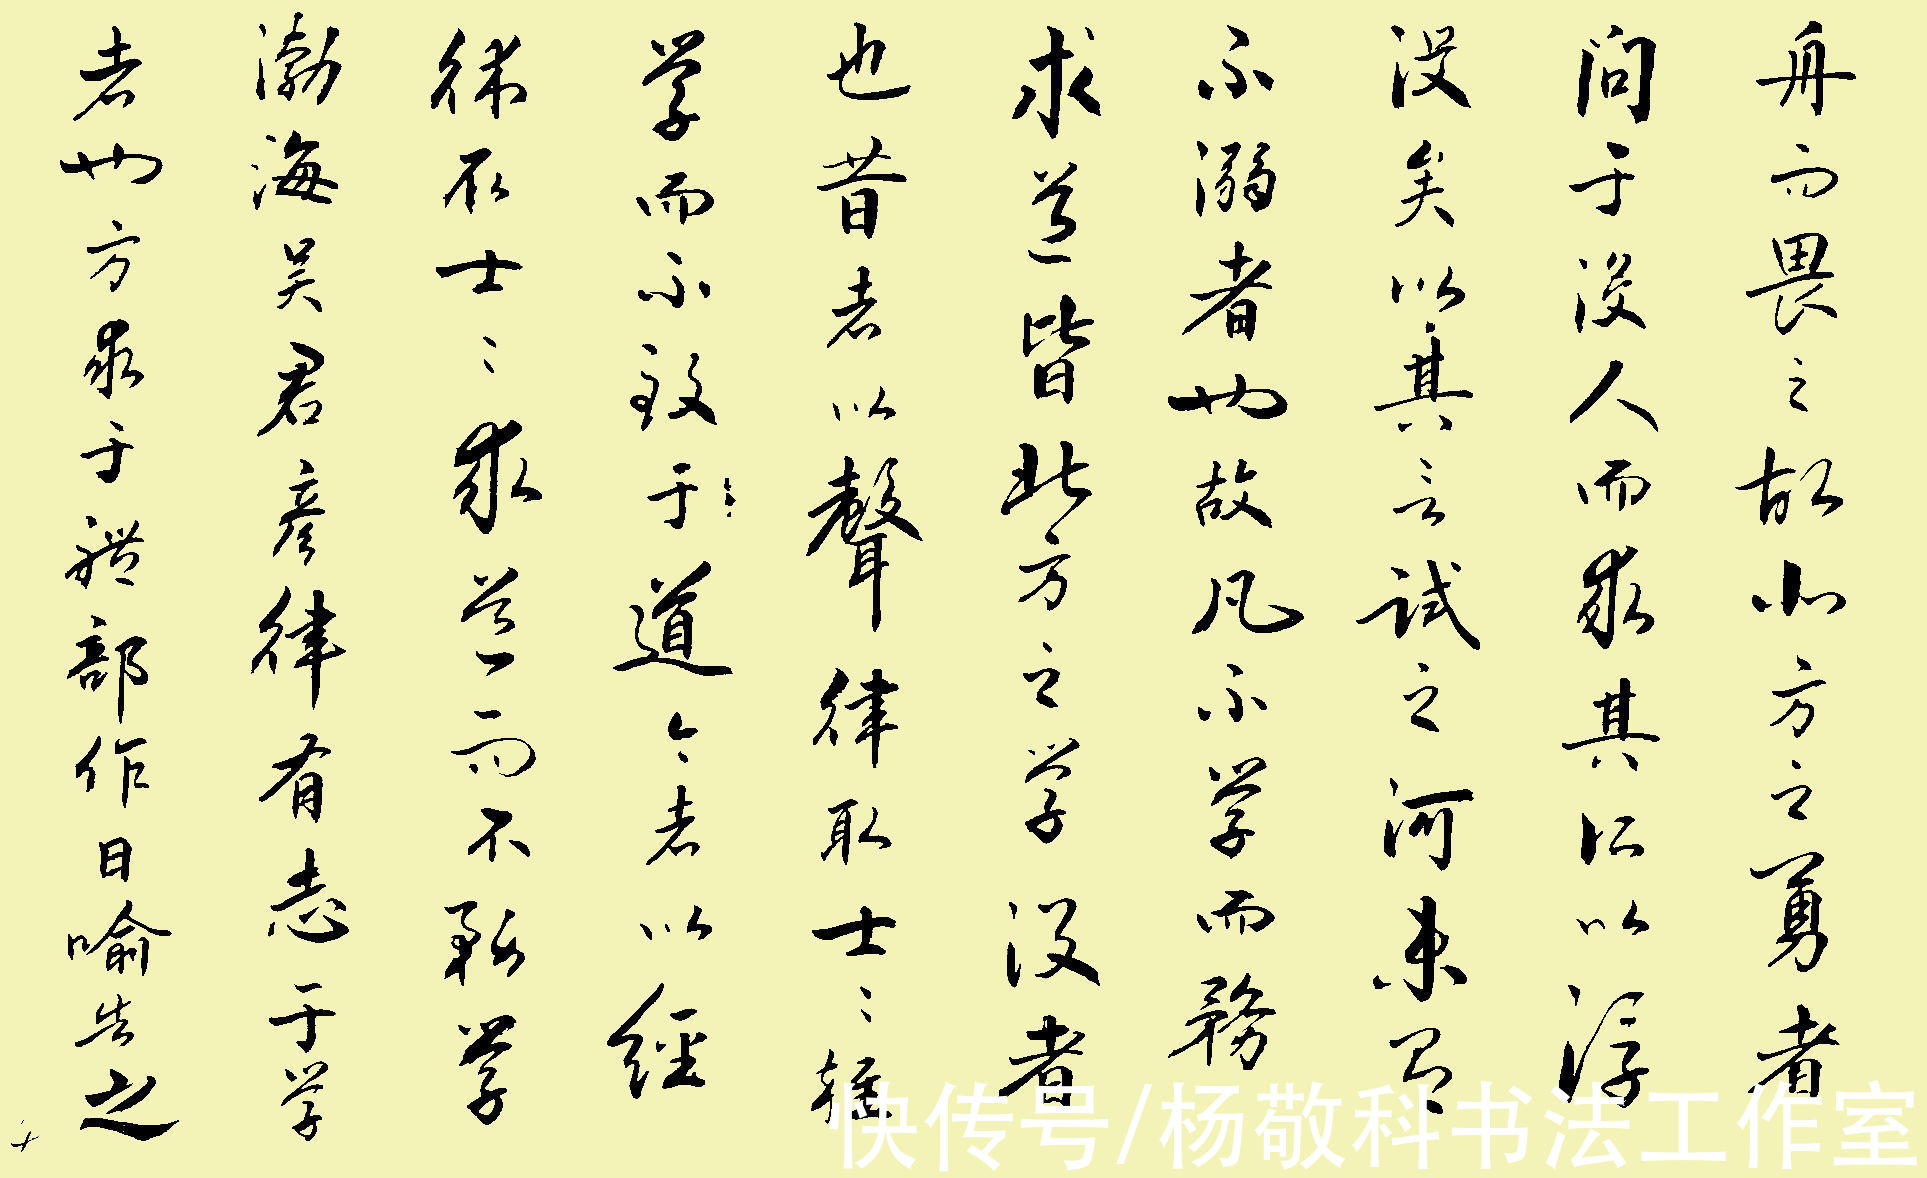 舟而畏之故北方之勇者
问于没人而求其所以浮
没矣以其言試之河未有
不溺者也故凡不学而務
求道皆北方之学没者
也昔者以聲律取士〻雜
学而不致于道今者以經
術取士〻求道而不務学
渤海吴君彦律有志于学
者也方求于禮部作日喻告之
快传号/杨敬科书法工作室